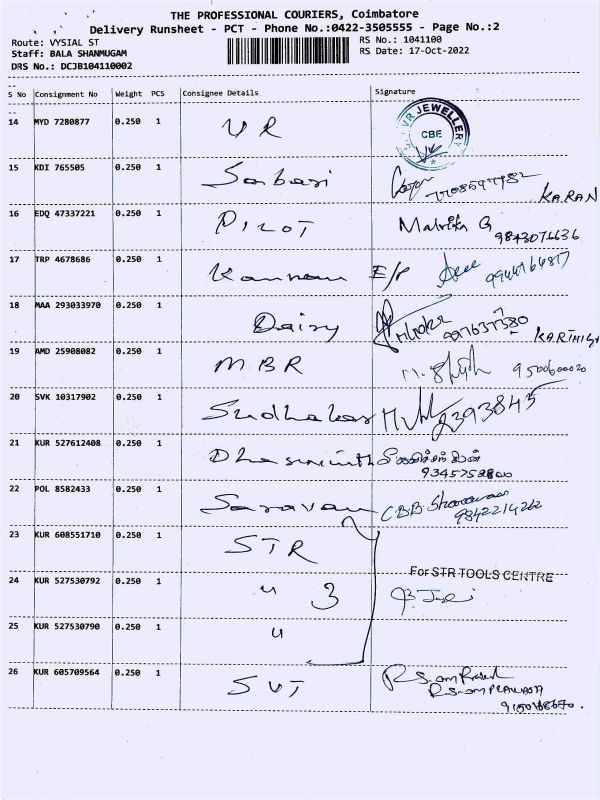 THE PROFESSIONAL COURIERS, Coimbatore
Delivery Runsheet - PCT - Phone No.:0422-3505555 - Page No.:2
Route: VYSIAL ST
RS No.: 1041100
Staff: BALA SHANMUGAM
RS Date: 17-Oct-2022
DRS No.: DCJB104110002
S No Consignment No Weight PCS Consignee Details Signature
14 MYD 7280877 0.250 1 VR VR JEWELLERY CBE
15 KDI 765505 0.250 1 Sabari KARAN
16 EDQ 47337221 0.250 1 PILOT Malvika G
9843076636
17 TRP 4678686 0.250 1 Kannan E/P
18 MAA 293033970 0.250 1 Dairy
19 AMD 25908082 0.250 1 MBR 9500600020
20 SVK 10317902 0.250 1 Sudhakar
21 KUR 527612408 0.250 1
9345752800
22 POL 8582433 0.250 1 Saravan C.B.B.
9842214262
23 KUR 608551710 0.250 1 STR
For STR TOOLS CENTRE
24 KUR 527530792 0.250 1 " 3
25 KUR 527530790 0.250 1 "
26 KUR 605709564 0.250 1 SVT